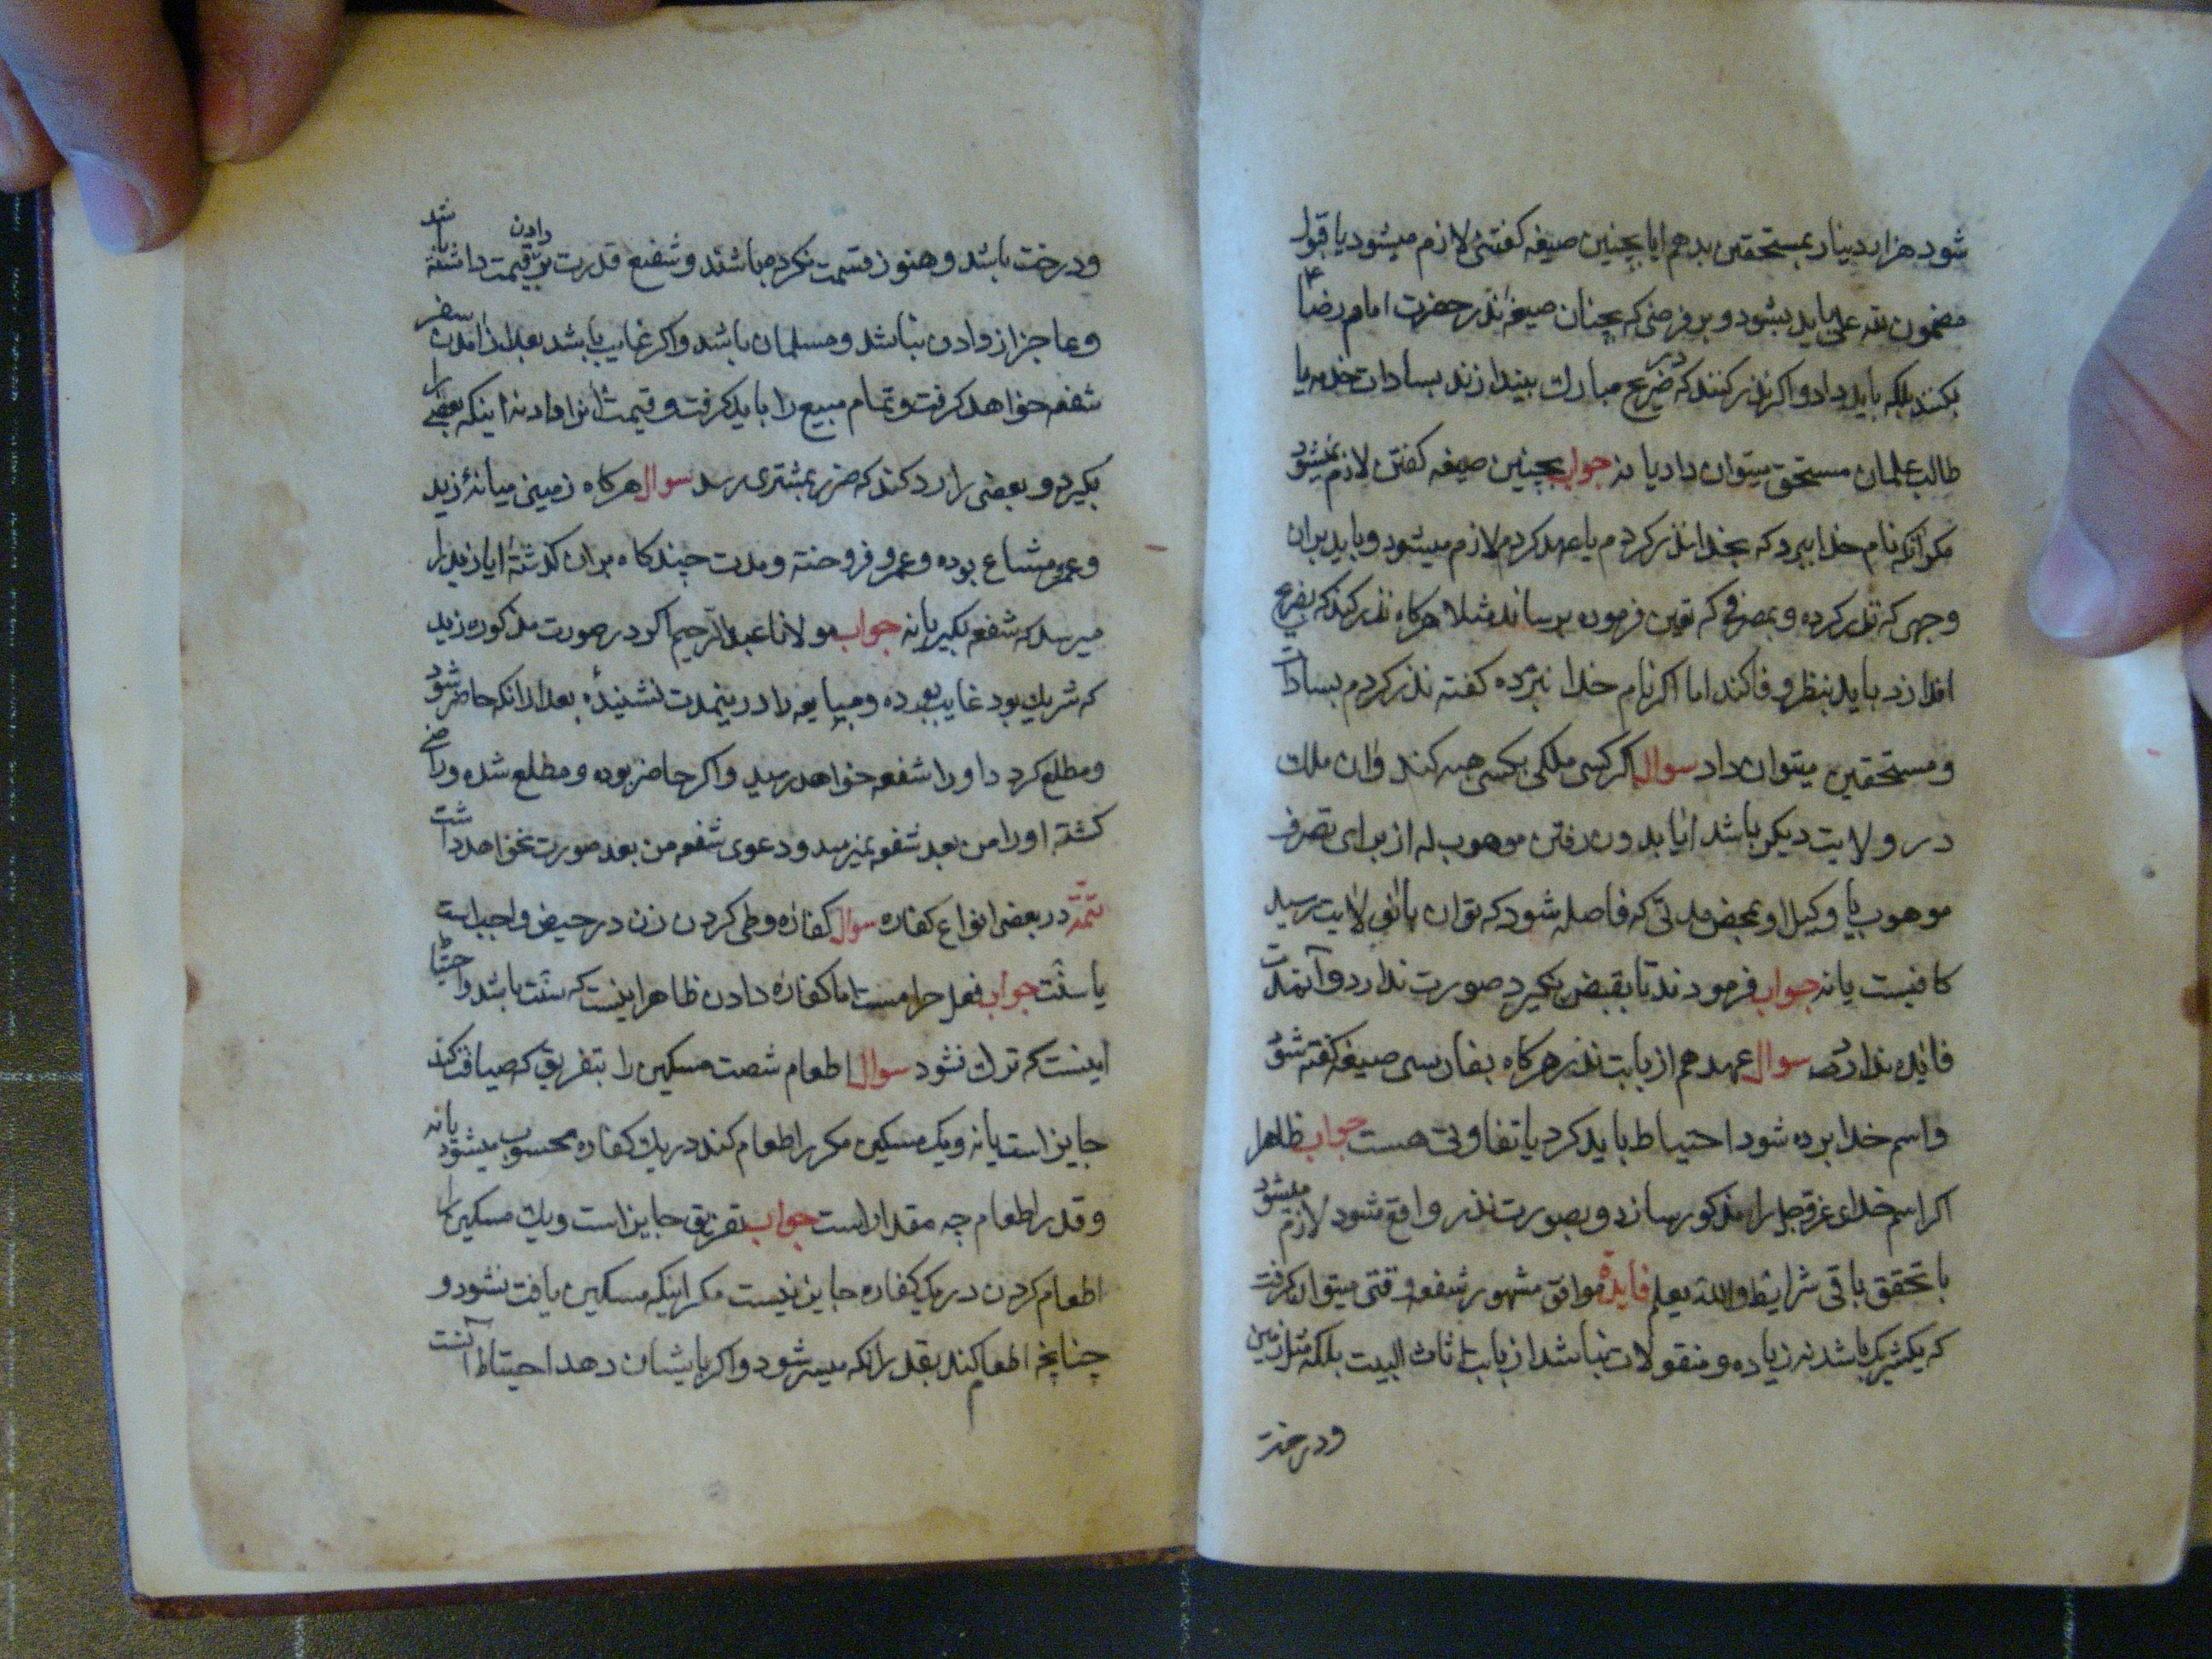 شود هزار دینار بمستحقین بدهم ایا بچنین صیغه کفتن لازم میشود یا قول
مضمون لله علی باید بشود و بر فرضی که بچنان صیغه نذر حضرت امام رضا ع
بکنند بلکه باید داد و اکر نذر کنند که در ضریح مبارك بیندازند بسادات خدمه یا
طالب علمان مستحق میتوان داد یا نه جواب بچنین صیغه کفتن لازم نمیشود
مکر آنکه نام خدا ببرد که بخدا نذر کردم یا عهد کردم لازم میشود و باید بران
وجهی که نذر کرده و بمصرفی که تعین فرموده برساند مثلا هرکاه نذر کند که بضریح
اندازد باید بنظر وفا کند اما اکر نام خدا نبرده کفته نذر کردم بسادات
و مستحقین میتوان داد سوال اکر کسی ملکی بکسی هبه کند وان ملك
در ولایت دیکر باشد ایا بدون رفتن موهوب له از برای تصرف
موهوب یا وکیل او بمحض مدتی که فاصله شود که توان بانولایت رسید
کافیست یا نه جواب فرمودند تا بقبض نکیرد صورت ندارد و آنمدت
فایده ندارد سوال عهد هم از بابت نذر هرکاه بفارسی صیغه کفته شود
واسم خدا برده شود احتیاط باید کرد یا تفاوتی هست جواب ظاهرا
اکر اسم خدای عزوجل را مذکور سازد و بصورت نذر واقع شود لازم میشود
با تحقق باقی شرایط والله یعلم فایده موافق مشهور شفعه وقتی میتوان کرفت
که یکشریك باشد نه زیاده و منقولات نباشد از بابت اثاث البیت بلکه مثل زمین
ودرخت
ودرخت باشد و هنوز قسمت نکرده باشند و شفیع قدرت بر دادن قیمت داشته باشد
وعاجز از دادن نباشد و مسلمان باشد واکر غایب باشد بعد از آمدن سفر
شفعه خواهد کرفت و تمام مبیع را باید کرفت و قیمت انرا داد نه اینکه بعضی را
بکیرد و بعضی را رد کند که ضرر بمشتری رسد سوال هرکاه زمینی میانهٔ زید
وعمرو مشاع بوده وعمرو فروخته و مدت چندکاه بران کذشته ایا زید را
میرسد که شفعه بکیرد یا نه جواب مولانا عبدالرحیم اکر در صورت مذکوره زید
که شریك بود غایب بوده و مبایعه را درینمدت نشنیده بعد ازانکه حاضر شود
ومطلع کردد اورا شفعه خواهد رسید واکر حاضر بوده و مطلع شده و راضی
کشته اورا من بعد شفعه نمیرسد و دعوی شفعه من بعد صورت نخواهد داشت
تتمه در بعضی انواع کفاره سوال کفاره وطی کردن زن در حیض واجب است
یا سنّت جواب فعل حرامست اما کفاره دادن ظاهرا اینست که سنّت باشد واحتیاط
اینست که ترك نشود سوال اطعام شصت مسکین را بتفریق که ضیافت کند
جایز است یا نه و یک مسکین مکرر اطعام کند در یك کفاره محسوب میشود یا نه
وقدر اطعام چه مقدار است جواب تفریق جایز است و یك مسکین را
اطعام کردن در یک کفاره جایز نیست مکر اینکه مسکین یافت نشود و
چنانچه اطعام کند بقدر آنکه سیر شود واکر بایشان دهد احتیاط آنست